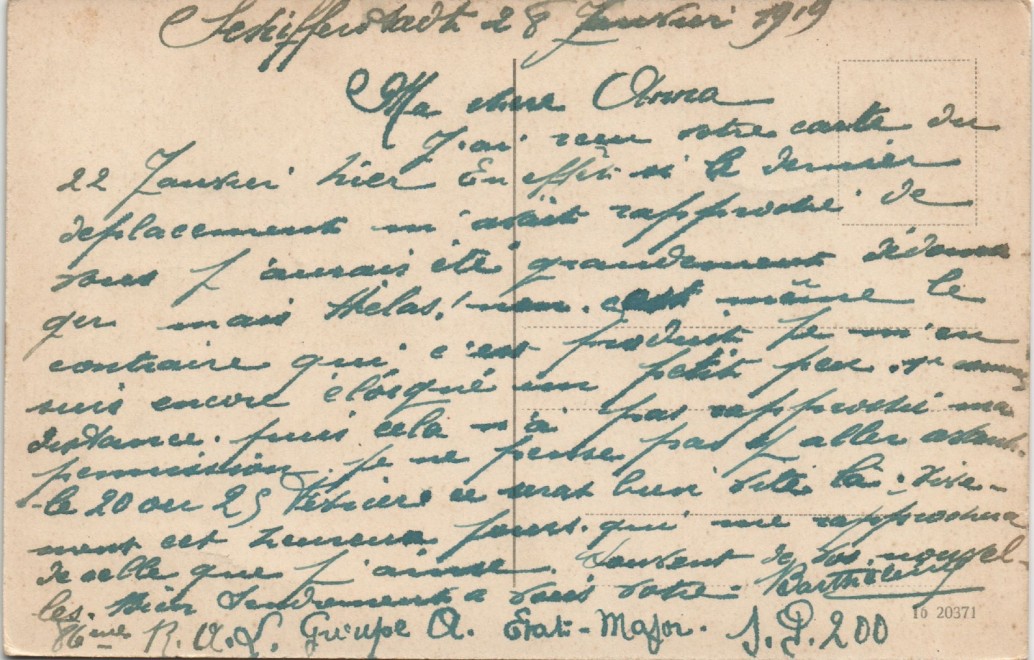 Schifferstadt 28 Janvier 1919
Ma chere Anna
J'ai recu votre carte du
22 Janvier hier En effet si le dernier
deplacement m'etait rapproché de
vous J'aurais été grandement dédomma
ger mais Helas! non. c'est même le
contraire qui c'est produit Je m'en
suis encore éloigné un petit peu.
distance. puis cela n'a pas rapproché ma
permission. Je ne pense pas y aller avant.
le 20 ou 25 Février ce sera bien vite là. vive-
ment cet heureux jours. qui me rapprochera
de celle que J'aime. Souvent de vos nouvel-
les. Bien Tendrement a vous votre Barthélemy
R. A. L. Groupe A. Etat-Major. S. P. 200
10 20371